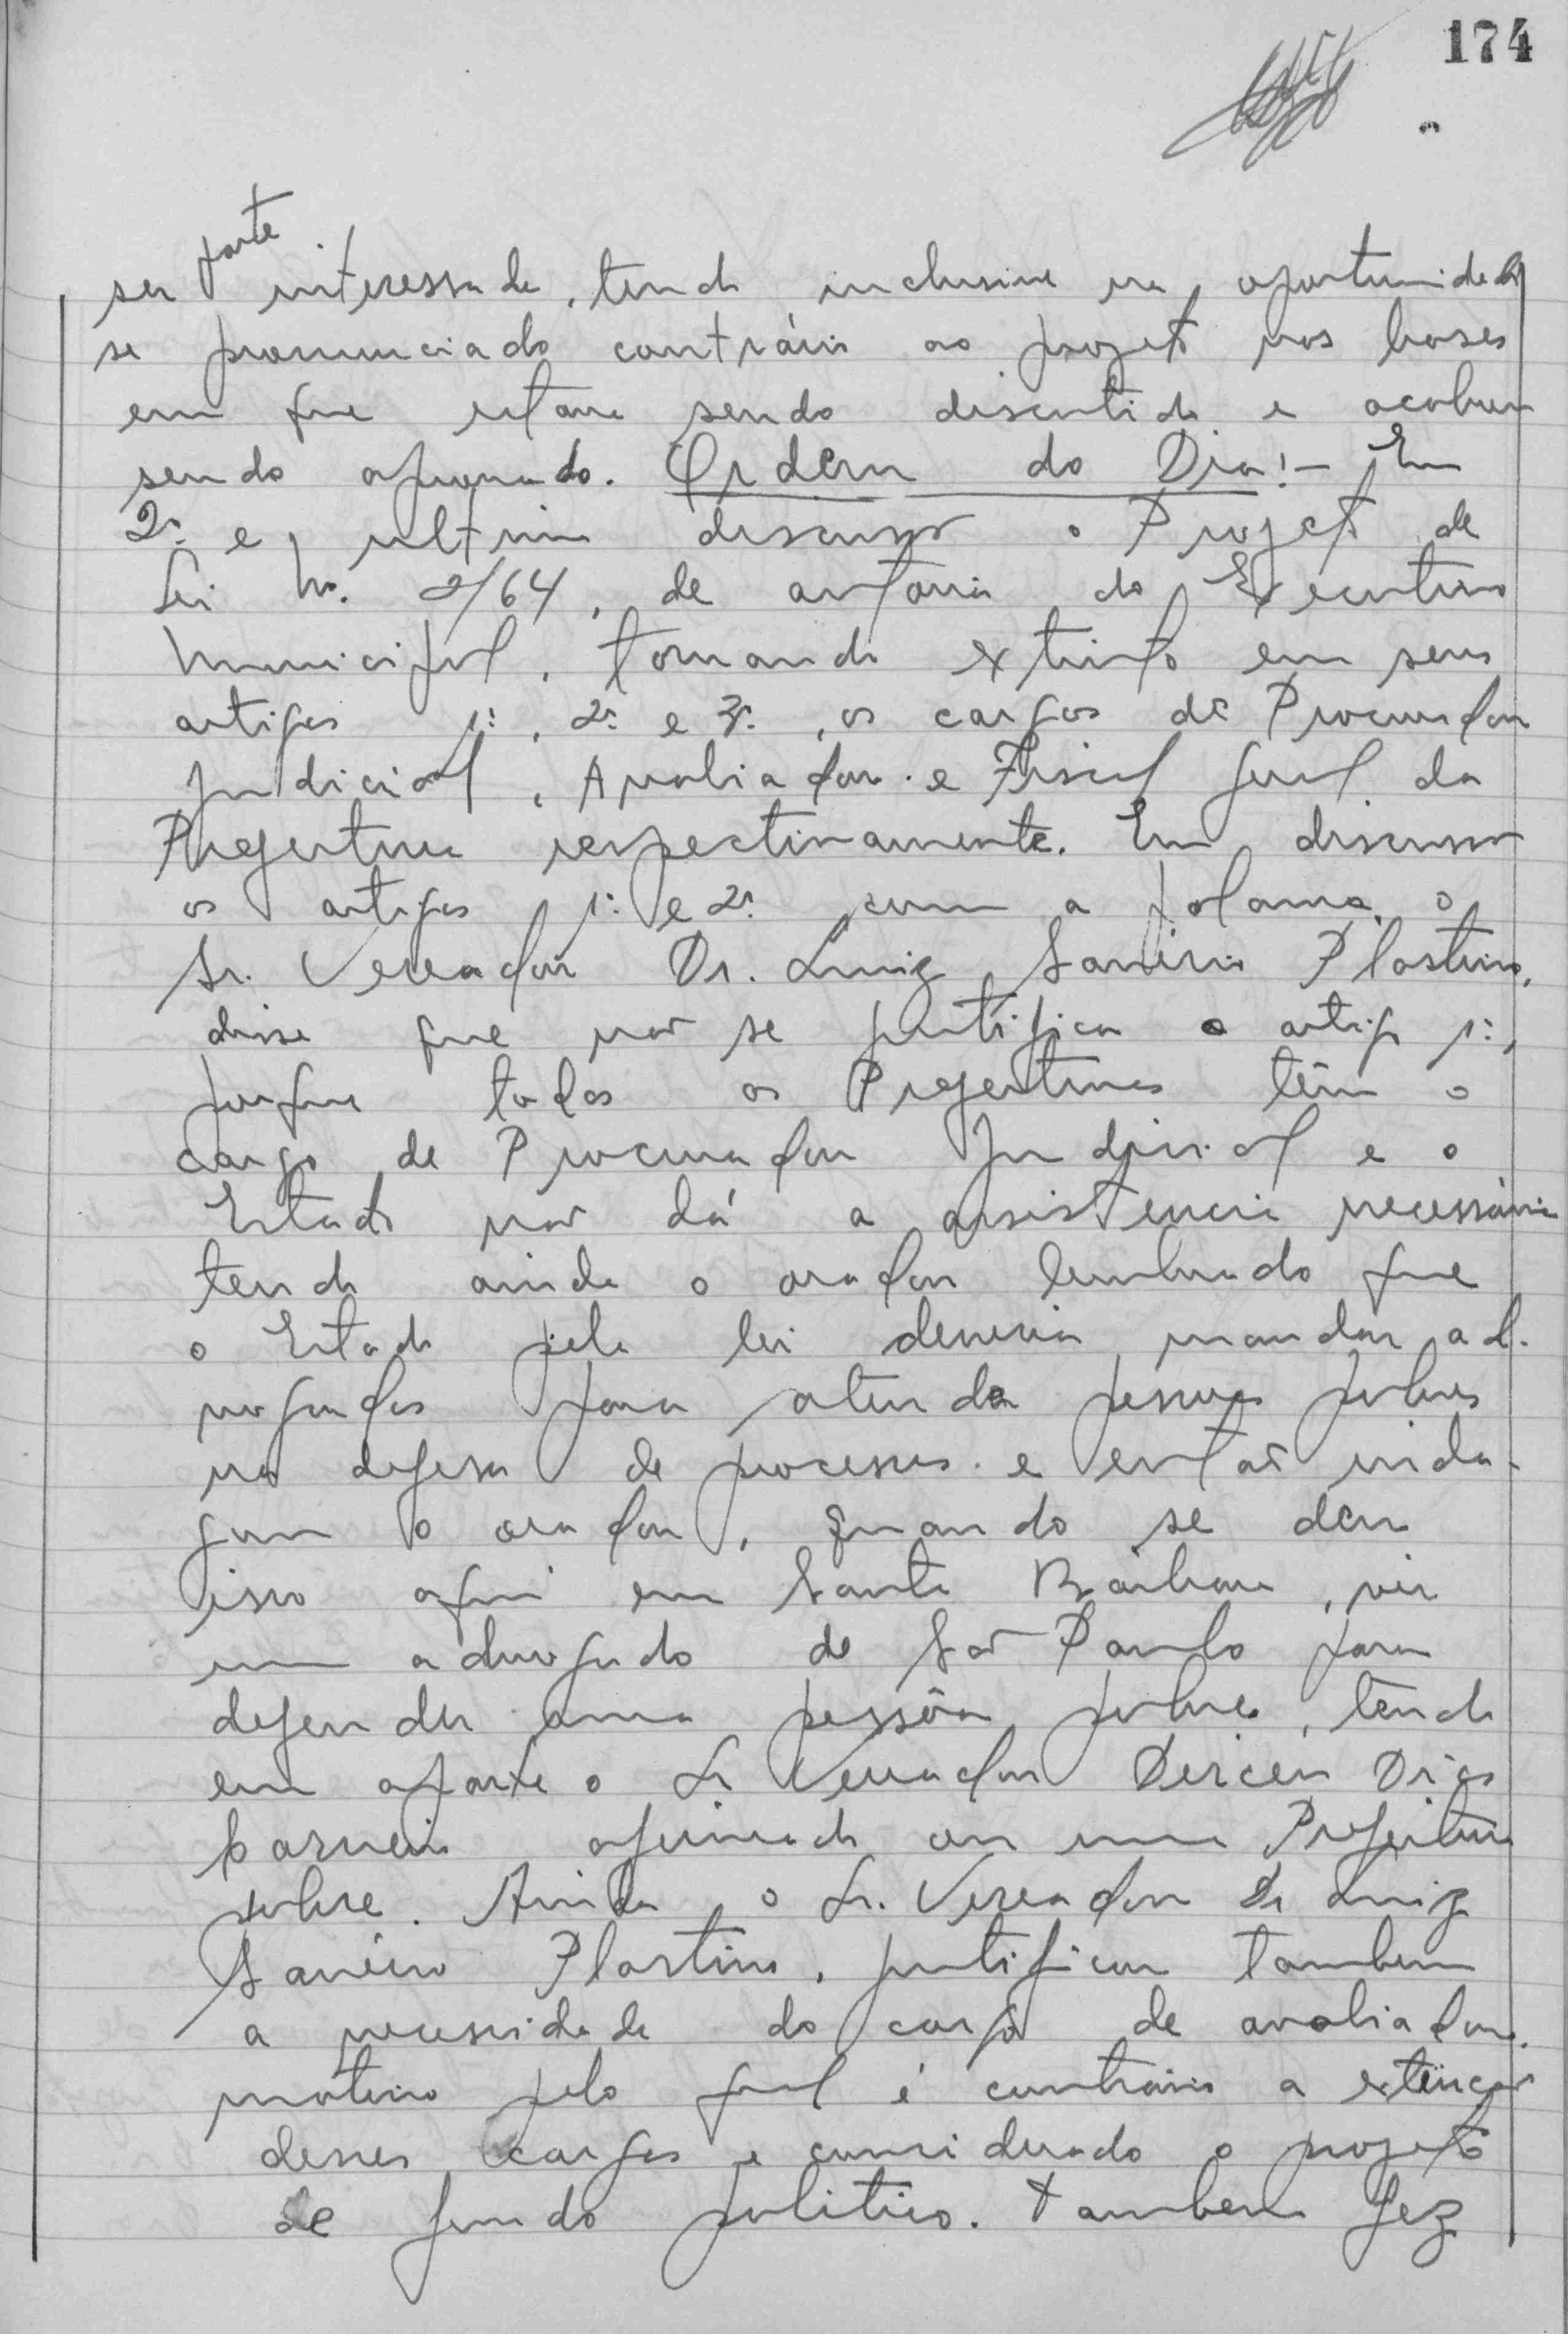 174
parte
ser interessada, tendo inclusive na oportunidade
se pronunciado contrário ao projeto nas bases
em que estava sendo discutido e acabou
sendo aprovado. Ordem do Dia:- Em
2ª e ultima discussão o Projeto de
Lei No. 2/64, de autoria do Executivo
Municipal, tornando extinto em seus
artigos 1º, 2º e 3º, os cargos de Procurador
Judicial, Avaliador e Fiscal Geral da
Prefeitura respectivamente. Em discussão
os artigos 1º e 2º com a palavra o
Sr. Vereador Dr. Luiz Savério Plastino,
disse que não se justifica o artigo 1º,
porque todas as Prefeituras têm o
cargo de Procurador Judicial e o
Estado não dá a assistencia necessária
tendo ainda o orador lembrado que
o Estado pela lei deveria mandar ad-
vogados para atender pessoas pobres
na defesa de processos e então inda-
gou o orador, quando se deu
isso aqui em Santa Bárbara, vir
um advogado de São Paulo para
defender uma pessôa pobre, tendo
em aparte o Sr Vereador Dirceu Dias
Carneiro afirmado em uma Prefeitura
pobre. Ainda o Sr. Vereador Dr Luiz
Savério Plastino, justificou tambem
a necessidade do cargo de avaliador,
motivo pelo qual é contrário a extinção
desses cargos e considerado o projeto
de fundo politico. Tambem fez